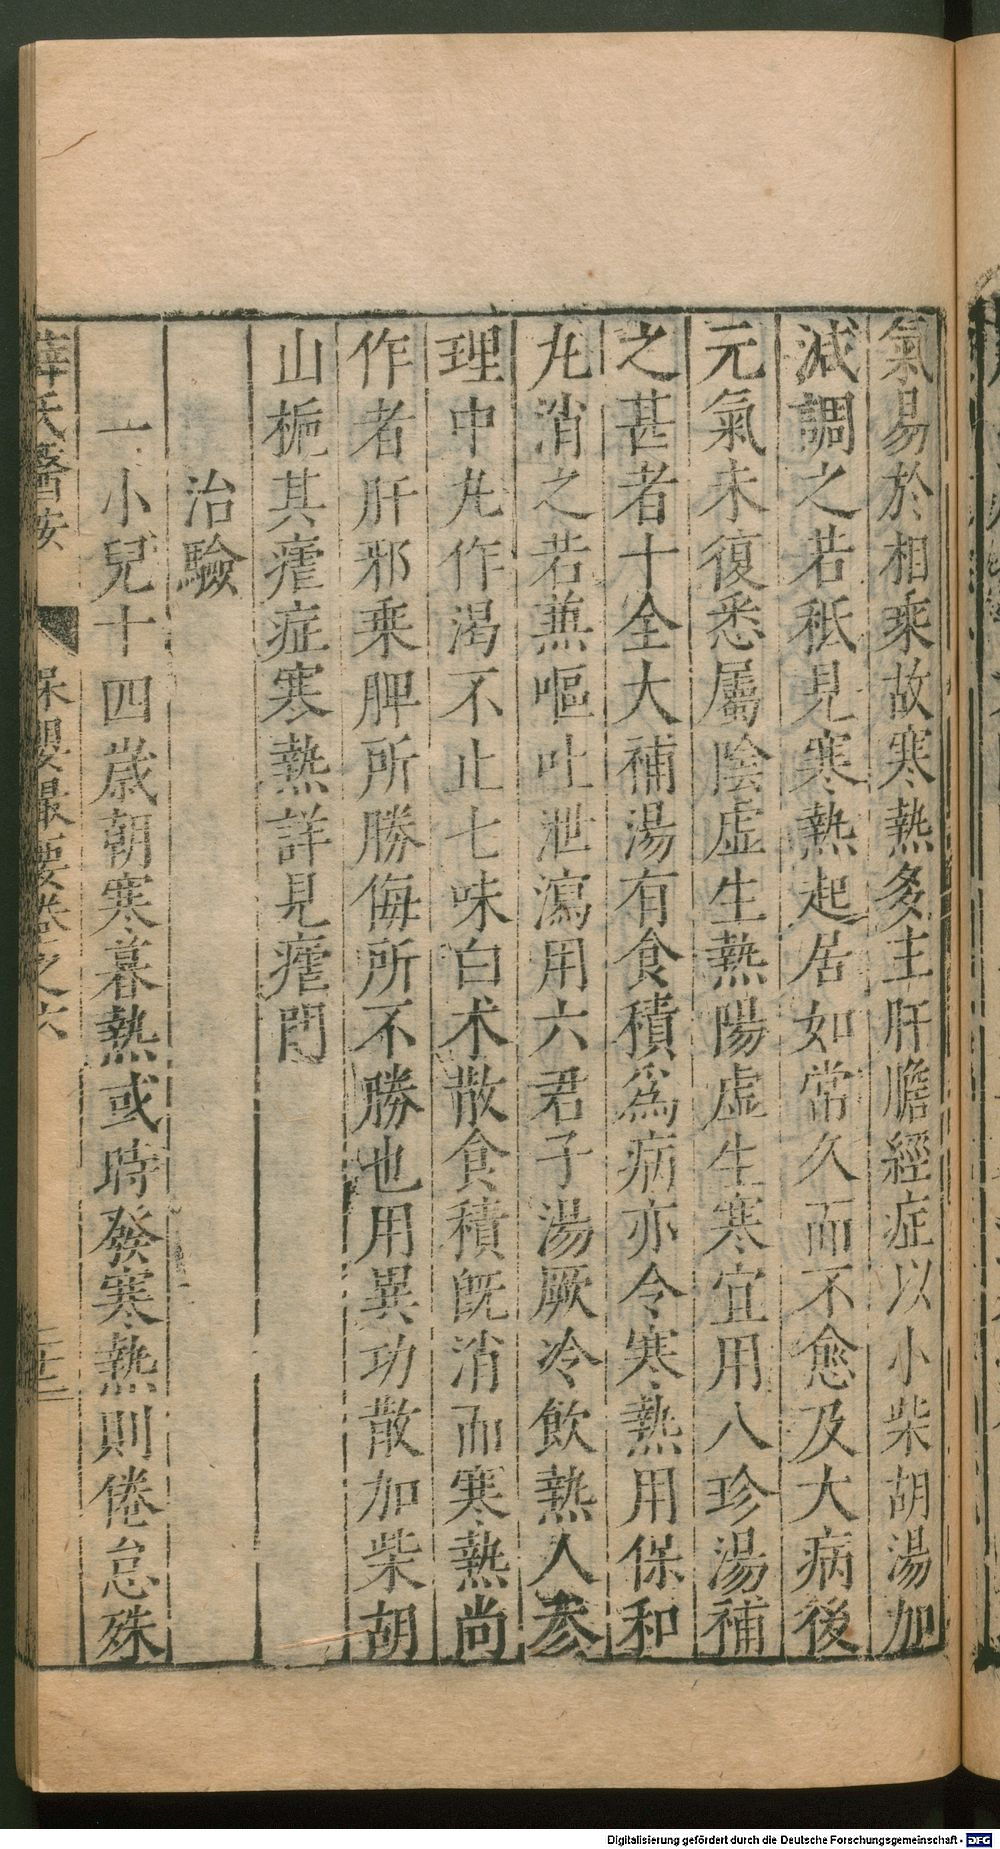 氣易於相乘故寒熱多主肝膽經症以小柴胡湯加
減調之若秪見寒熱起居如常久而不愈及大病後
元氣未復悉屬陰虛生熱陽虛生寒宜用八珍湯補
之甚者十全大補湯有食積為病亦令寒熱用保和
丸消之若兼嘔吐泄瀉用六君子湯厥冷飲熱人參
理中丸作渴不止七味白术散食積既消而寒熱尚
作者肝邪乘脾所勝侮所不勝也用異功散加柴胡
山梔其瘧症寒熱詳見瘧門
治驗
一小兒十四歲朝寒暮熱或時發寒熱則倦怠殊
薛氏醫按 保嬰撮要卷之六
Digitalisierung gefördert durch die Deutsche Forschungsgemeinschaft - DFG